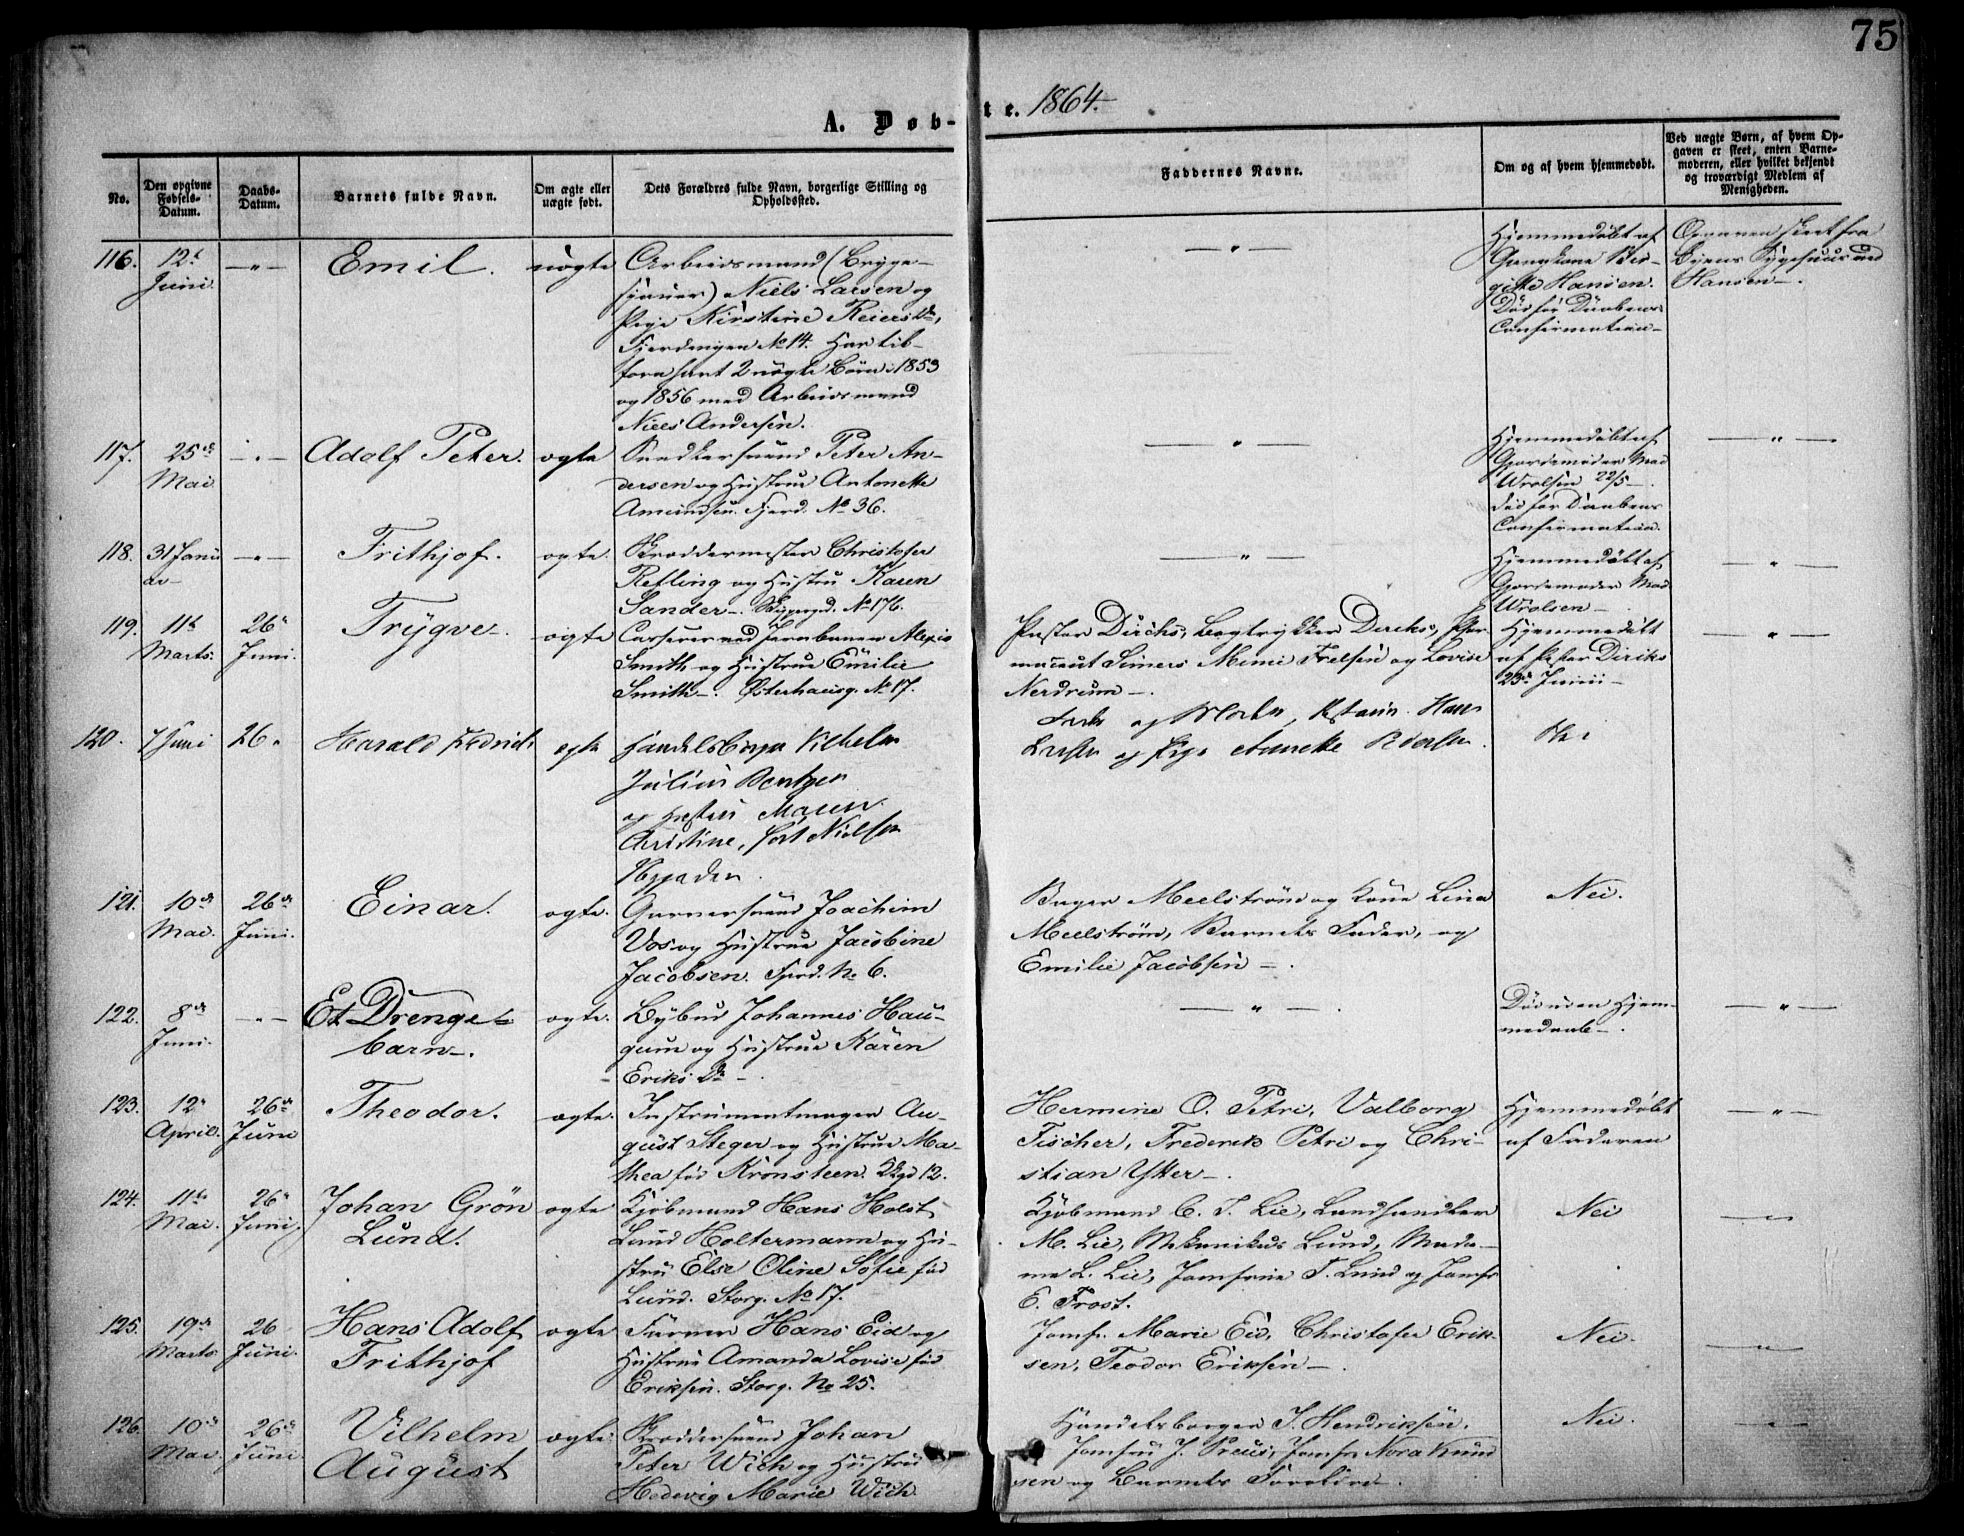 75
A. Døb-
te. 1864.
No.
Den opgivne Fødsels-Datum.
Daabs-Datum.
Barnets fulde Navn.
Om ægte eller uægte født.
Dets Forældres fulde Navn, borgerlige Stilling og Opholdssted.
Faddernes Navne.
Om og af hvem hjemmedøbt.
Ved uægte Børn, af hvem Opgaven er skeet, enten Barnemoderen, eller hvilket bekjendt og troværdigt Medlem af Menigheden.
116. 12te Juni — " — Emil. uögte
Arbeidsmand (Brygge-
sjouer) Niels Larsen og
Pige Kirstine Reiersdr,
Fjerdingen No 14. Har til-
forn havt 2 uögte Börn i 1853
og 1856 med Arbeidsmand
Niels Andersen.
— " —
Hjemmedöbt af
Gangkone Bir-
gitte Hansen.
Död för Daabens
Confirmation —
Opgaven skeet fra
Byens Sygehuus ved
Hansen —.
117. 25de Mai — " — Adolf Peter. ögte
Snedkersvend Peter An-
dersen og Hustrue Antonette
Amundsen. Fjerd. No 36.
— " —
Hjemmedöbt af
Gjordemoder Mad
Wrolsen 22/5 —
död för Daabens
Confirmation.
— " —
118. 31 Janu
ar — — " — Frithjof. ögte.
Skræddermester Christofer
Refling og Hustru Karen
Sander —. No 176.
— " —
Hjemmedöbt af
Gjordemoder Mad
Wrolsen —
— " —
119. 11te Marts. 26de Juni. Trÿgve —. ögte
Casserer ved Jernbanen Alexis
Smith og Hustrue Emilie
Smith —. Østerhausg. No 17.
Pastor Diriks, Bogtrykker Diriks,
Mimi og Lovise
Nerdrum —.
Hjemmedöbt
af Pastor Diriks
23de Juni —
— " —
120. 7 Juni 26. Harald Fredrick ægte
Handelsborger Vilhelm
Julius Bentzen
og Hustru Maren
Christine, født Nielsen
og Moder, Hans
Larsen og Pige Annette
Nei
121. 10de Mai. 26de Juni. Einar. ögte.
Garversvend Joachim
Vos og Hustrue Jacobine
Jacobsen. Fjerd. No 6.
Bager Meelström og Kone Lina
Meelström, Barnets Fader, og
Emilie Jacobsen —.
Nei.
122. 8de Juni. — " — Et Drenge-
barn —. ögte.
Bÿbud Johannes Hau-
gum og Hustrue Karen
Eriksdr —.
— " —.
Död uden Hjem-
medaab —.
— " —
123. 12te April. 26de Juni Theodor. ögte.
Instrumentmager Au-
gust Steger og Hustrue Ma-
thea föd Kronsteen. 12.
Hermine O. Petri, Valborg
Fischer, Frederik Petri og Chri-
stian Ytter —.
Hjemmedöbt
af Faderen
— " —
124. 11te Mai. 26de Juni, Johan Grön
Lund. ögte
Kjöbmand Hans Holst
Lund Holtermann og Hu-
stru Else Oline Sofie föd
Lund. Storg. No 17.
Kjöbmand C. T. Lie, Landhandler
M. Lie, Mekanikus Lund, Mada-
me L. Lie, Jomfrue T. Lund og Jomfr
E. Frost.
Nei
— " —
125. 19de Marts 26 Juni. Hans Adolf
Frithjof ögte
Farver Hans Eid og
Hustrue Amanda Lovise föd
Eriksen. Storg. No 25.
Jomfr. Marie Eid, Christofer Erik-
sen, Teodor Eriksen —.
Nei.
— " —
126. 10de Mai. 26de Juni Vilhelm
August ögte.
Skræddersvend Johan
Peter Wich og Hustrue
Hedevig Marie Wich.
Handelsborger J. Hendriksen,
Jomfru J. Preus, Jomfr. Nora Knud
sen og Barnets Forældre —.
Nei.
— " —